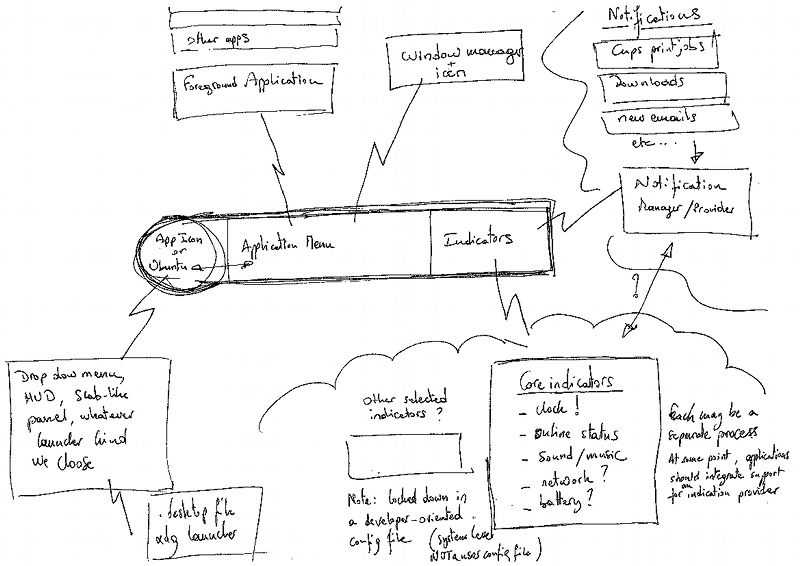 other apps
Foreground Application
Window manager
+
icon
Notifications
Cups printjobs
Downloads
new emails
etc...
Notification
Manager/Provider
App Icon
or
Ubuntu
Application Menu
Indicators
?
Drop down menu,
HUD, Slab-like
panel, whatever
launcher kind
we choose
.desktop file
xdg launcher
Other selected
indicators?
Note: locked down in
a developer-oriented
config file (system level
NOT a users config file)
Core indicators
- clock!
- online status
- sound/music
- network?
- battery?
Each may be a
separate process
At some point, applications
should integrate support
for an indication provider